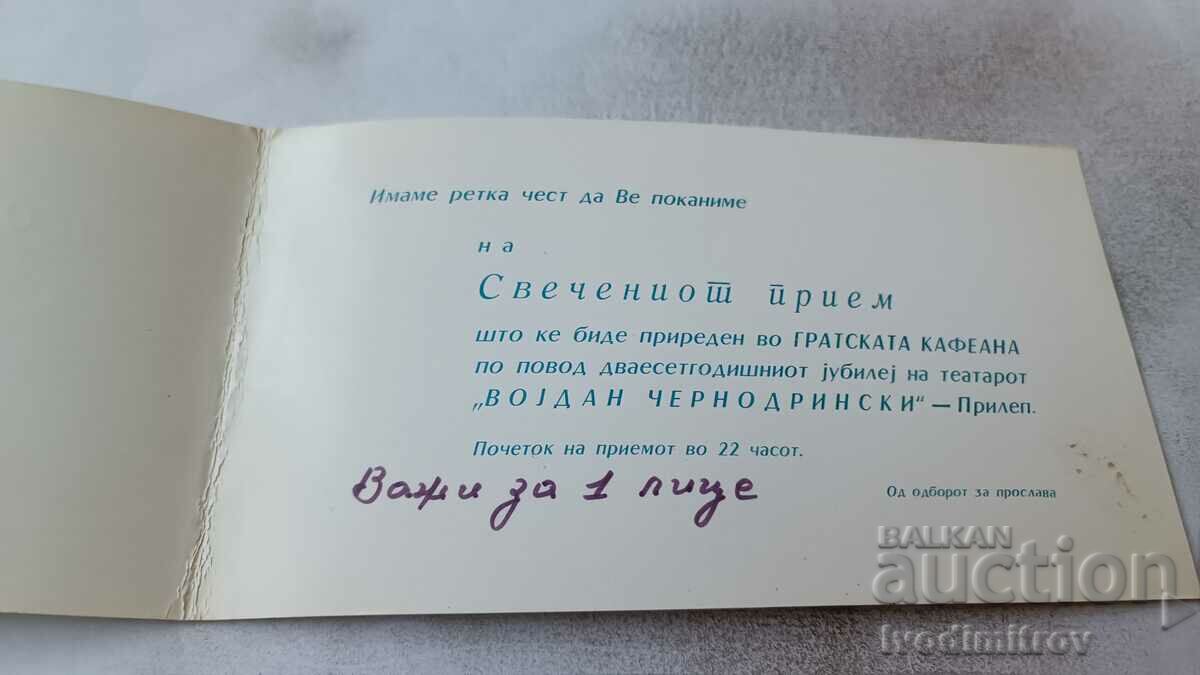 Имаме ретка чест да Ве поканиме
на
Свечениот прием
што ке биде прирeден во ГРАТСКАТА КАФЕАНА
по повод дваесетгодишниот јубилеј на театарот
„ВОЈДАН ЧЕРНОДРИНСКИ“ — Прилеп.
Почеток на приемот во 22 часот.
Важи за 1 лице
Од одборот за прослава
BALKAN
auction
ivodimitrov